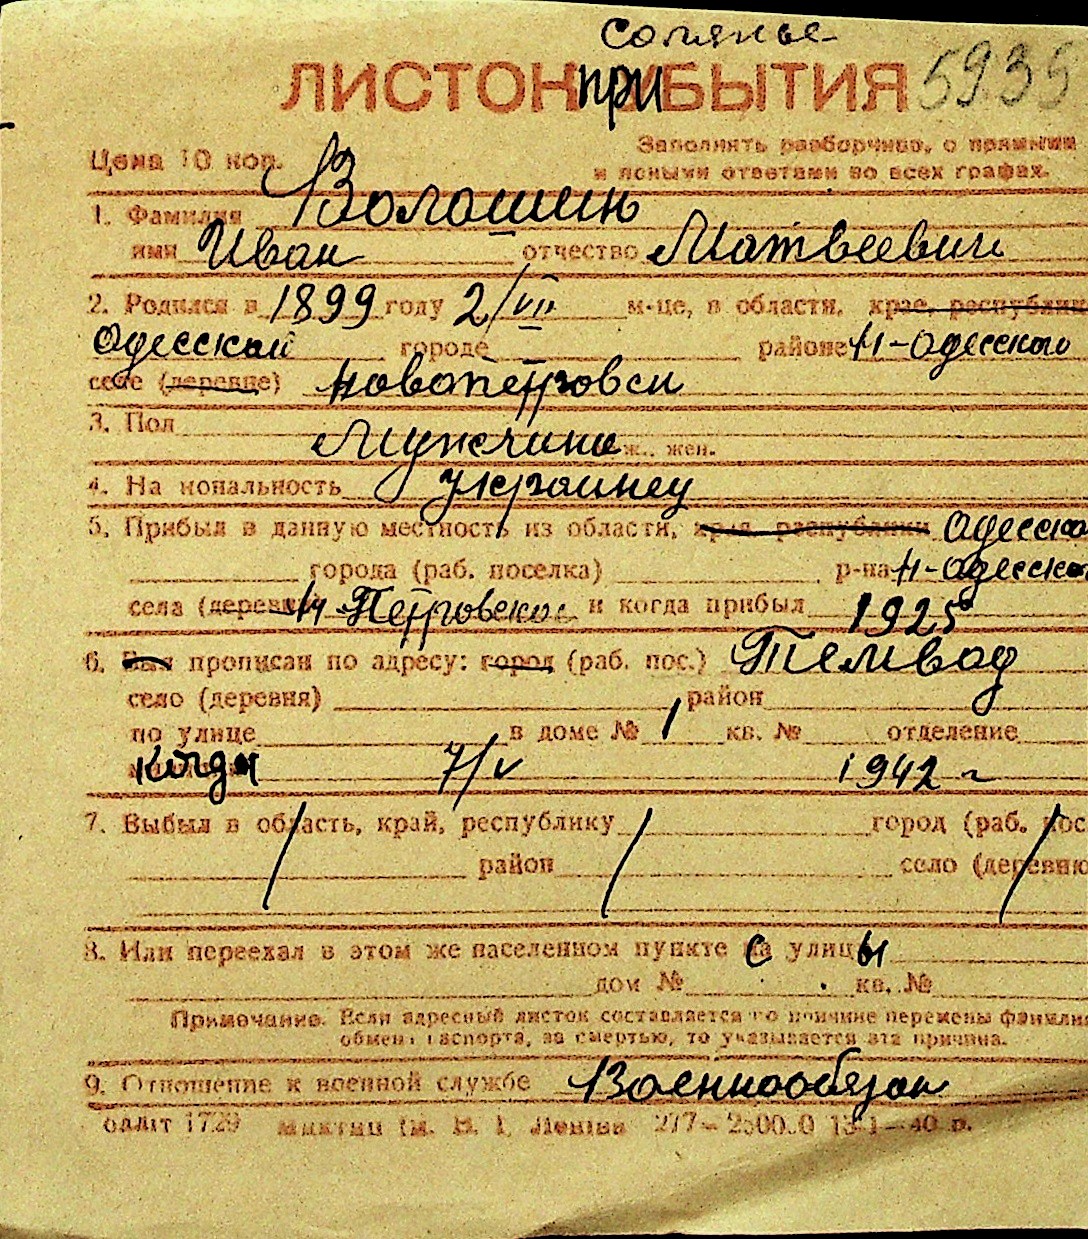 Соляные
ЛИСТОК при БЫТИЯ 5935
Цена 10 коп. Заполнять разборчиво, с прямыми
и ясными ответами во всех графах.
1. Фамилия Волошин
имя Иван отчество Матвеевич
2. Родился в 1899 году 2/VII м-це, в области, крае, республике
Одесской городе районе Н-Одесского
селе (деревне) Новопетровси
3. Пол Мужчина ж.. жен.
4. На иональность украинец
5. Прибыл в данную местность из области, края, республики Одесско
города (раб. поселка) р-на Н-Одесско
села (деревни) Н-Петровское и когда прибыл 1925
6. Был прописан по адресу: город (раб. пос.) Темвод
село (деревня) район
по улице в доме № 1 кв. № отделение
когда 7/V 1942 г
7. Выбыл в область, край, республику город (раб. пос
район село (деревню
8. Или переехал в этом же населенном пункте с улицы
дом № кв. №
Примечание. Если адресный листок составляется по причине перемены фамилии
обмен паспорта, за смертью, то указывается эта причина.
9. Отношение к военной службе Военнообязан
1729 Ленина 277— 13-1—40 р.